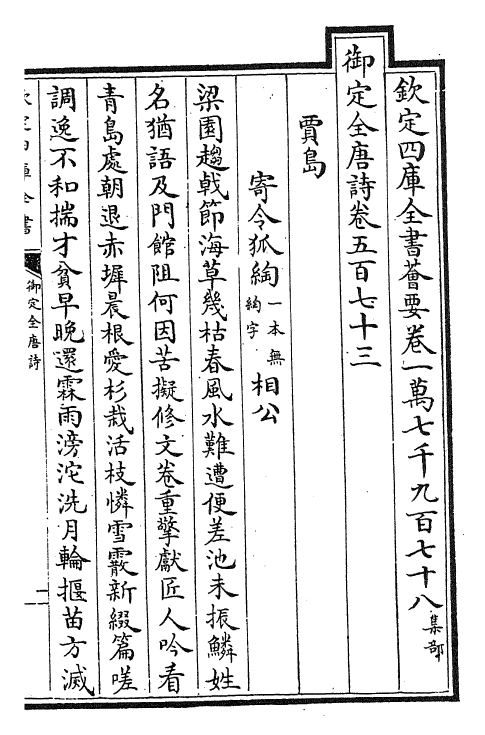 欽定四庫全書薈要卷一萬七千九百七十八集部
御定全唐詩卷五百七十三
賈島
寄令狐綯一本無綯字相公
梁園趨戟節海草幾枯春風水難遭便差池未振鱗姓
名猶語及門館阻何因苦擬修文卷重擎獻匠人吟看
青島處朝退赤墀晨根愛杉栽活枝憐雪霰新綴篇嗟
調逸不和揣才貧早晚還霖雨滂沱洗月輪握苗方滅
欽定四庫全書
御定全唐詩
一